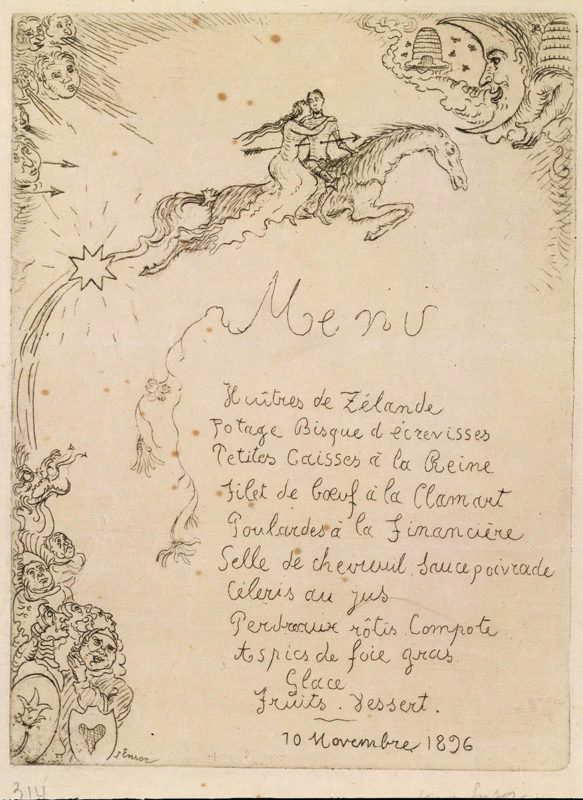 Menu
Huîtres de Zélande
Potage Bisque d'écrevisses
Petites Caisses à la Reine
Filet de bœuf à la Clamart
Poulardes à la Financière
Selle de chevreuil Sauce poivrade
Céleris au jus
Perdreaux rôtis Compote
Aspics de foie gras
Glace
Fruits. Dessert.
10 Novembre 1896
Ensor
314